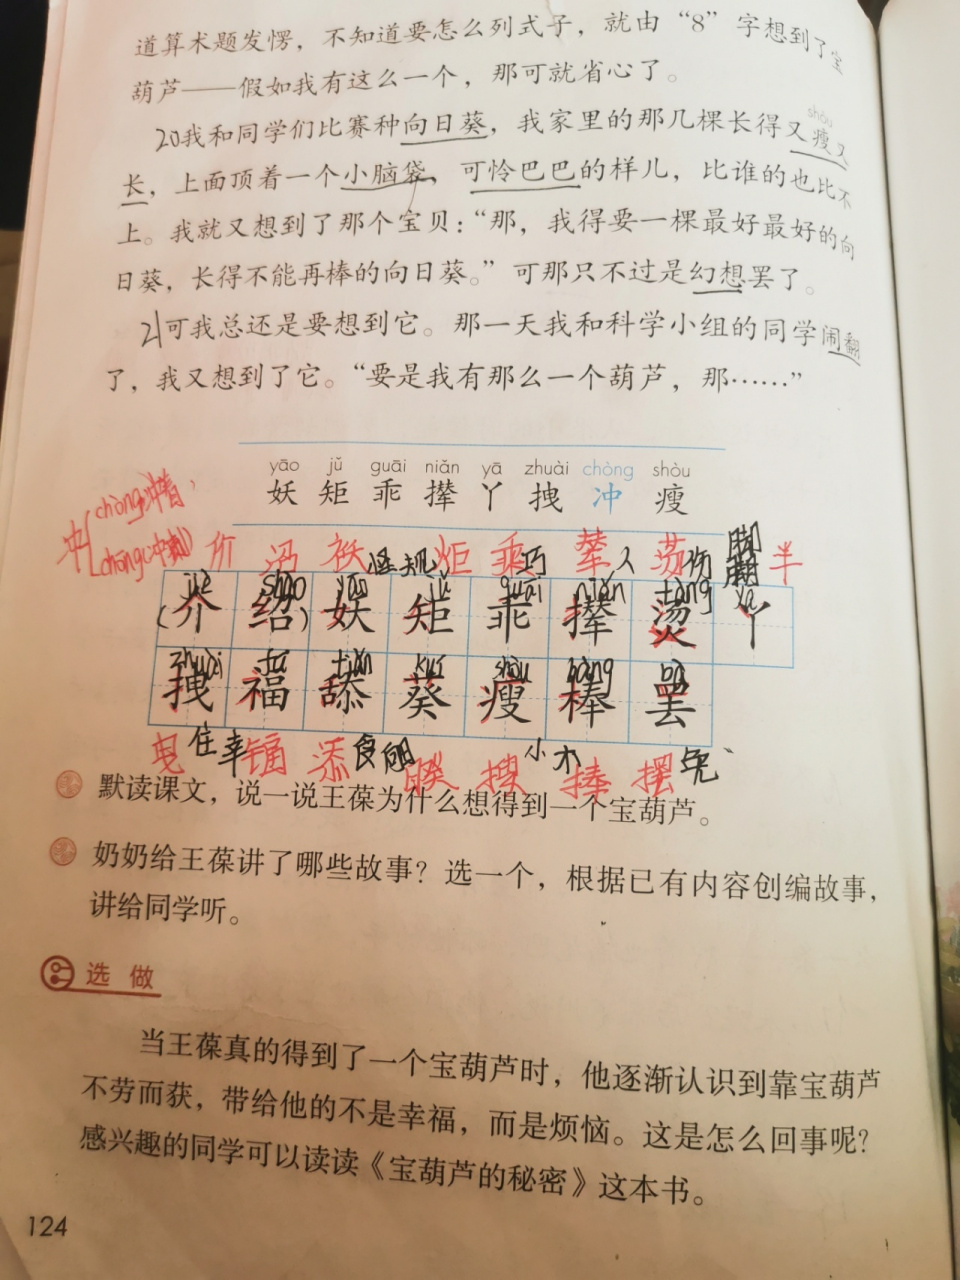 道算术题发愣，不知道要怎么列式子，就由“8”字想到了宝
葫芦——假如我有这么一个，那可就省心了。
shòu
20我和同学们比赛种向日葵，我家里的那几棵长得又瘦又
长，上面顶着一个小脑袋，可怜巴巴的样儿，比谁的也比不
上。我就又想到了那个宝贝：“那，我得要一棵最好最好的向
日葵，长得不能再棒的向日葵。”可那只不过是幻想罢了。
21可我总还是要想到它。那一天我和科学小组的同学闹翻
了，我又想到了它。“要是我有那么一个葫芦，那……”
yāo jǔ guāi niǎn yā zhuài chòng shòu
妖 矩 乖 撵 丫 拽 冲 瘦
冲 chòng冲着
chōng(冲刺)
价 沼 袄 怪 规 炬 乘 巧 辇 人 荡 伤 半
jiè shào yāo jǔ guāi niǎn tàng yā
(介 绍) 妖 矩 乖 撵 烫 丫
zhuài fú tiǎn kuí shòu bàng bà
拽 福 舔 葵 瘦 棒 罢
住 幸 镉 添 食 小 木 捧 摆
默读课文，说一说王葆为什么想得到一个宝葫芦。
奶奶给王葆讲了哪些故事？选一个，根据已有内容创编故事，
讲给同学听。
选做
当王葆真的得到了一个宝葫芦时，他逐渐认识到靠宝葫芦
不劳而获，带给他的不是幸福，而是烦恼。这是怎么回事呢？
感兴趣的同学可以读读《宝葫芦的秘密》这本书。
124